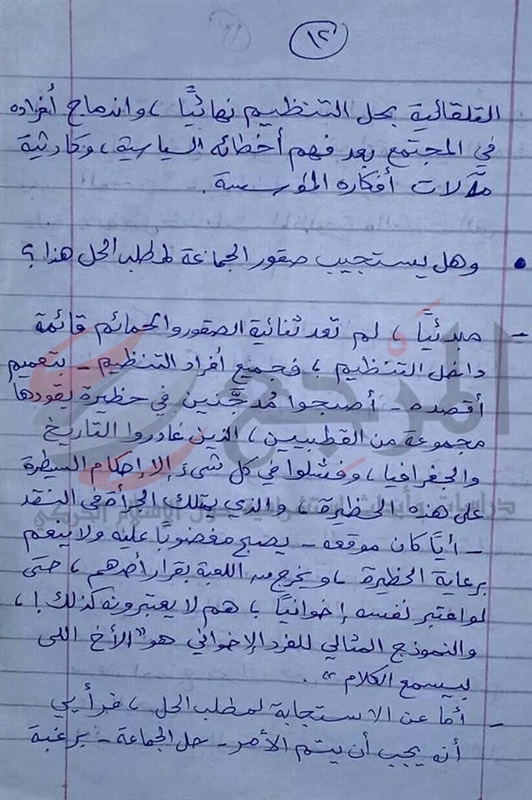 ١٢
التلقائية بحل التنظيم نهائيًا، واندماج أفراده
في المجتمع بعد فهم أخطائه السياسية، وكارثية
مآلات أفكاره المؤسسة.
• وهل يستجيب صقور الجماعة لمطلب الحل هذا؟
- مبدئيًا، لم تعد ثنائية الصقور والحمائم قائمة
داخل التنظيم، فجميع أفراد التنظيم - بتعميم
أقصده - أصبحوا مُدجَّنين في حظيرة يقودها
مجموعة من القطبيين، الذين غادروا التاريخ
والجغرافيا، وفشلوا في كل شيء إلا إحكام السيطرة
على هذه الحظيرة، والذي يمتلك الجرأة في النقد
- أيًا كان موقعه - يصبح مغضوبًا عليه ولا ينعم
برعاية الحظيرة، ويخرج من اللعبة بقرار أحدهم، حتى
لو اعتبر نفسه إخوانيًا، هم لا يعتبرونه كذلك!،
والنموذج المثالي للفرد الإخواني هو "الأخ اللي
بيسمع الكلام".
- أما عن الاستجابة لمطلب الحل، فرأيي
أنه يجب أن يتم الأمر - حل الجماعة - برغبة
المرجع